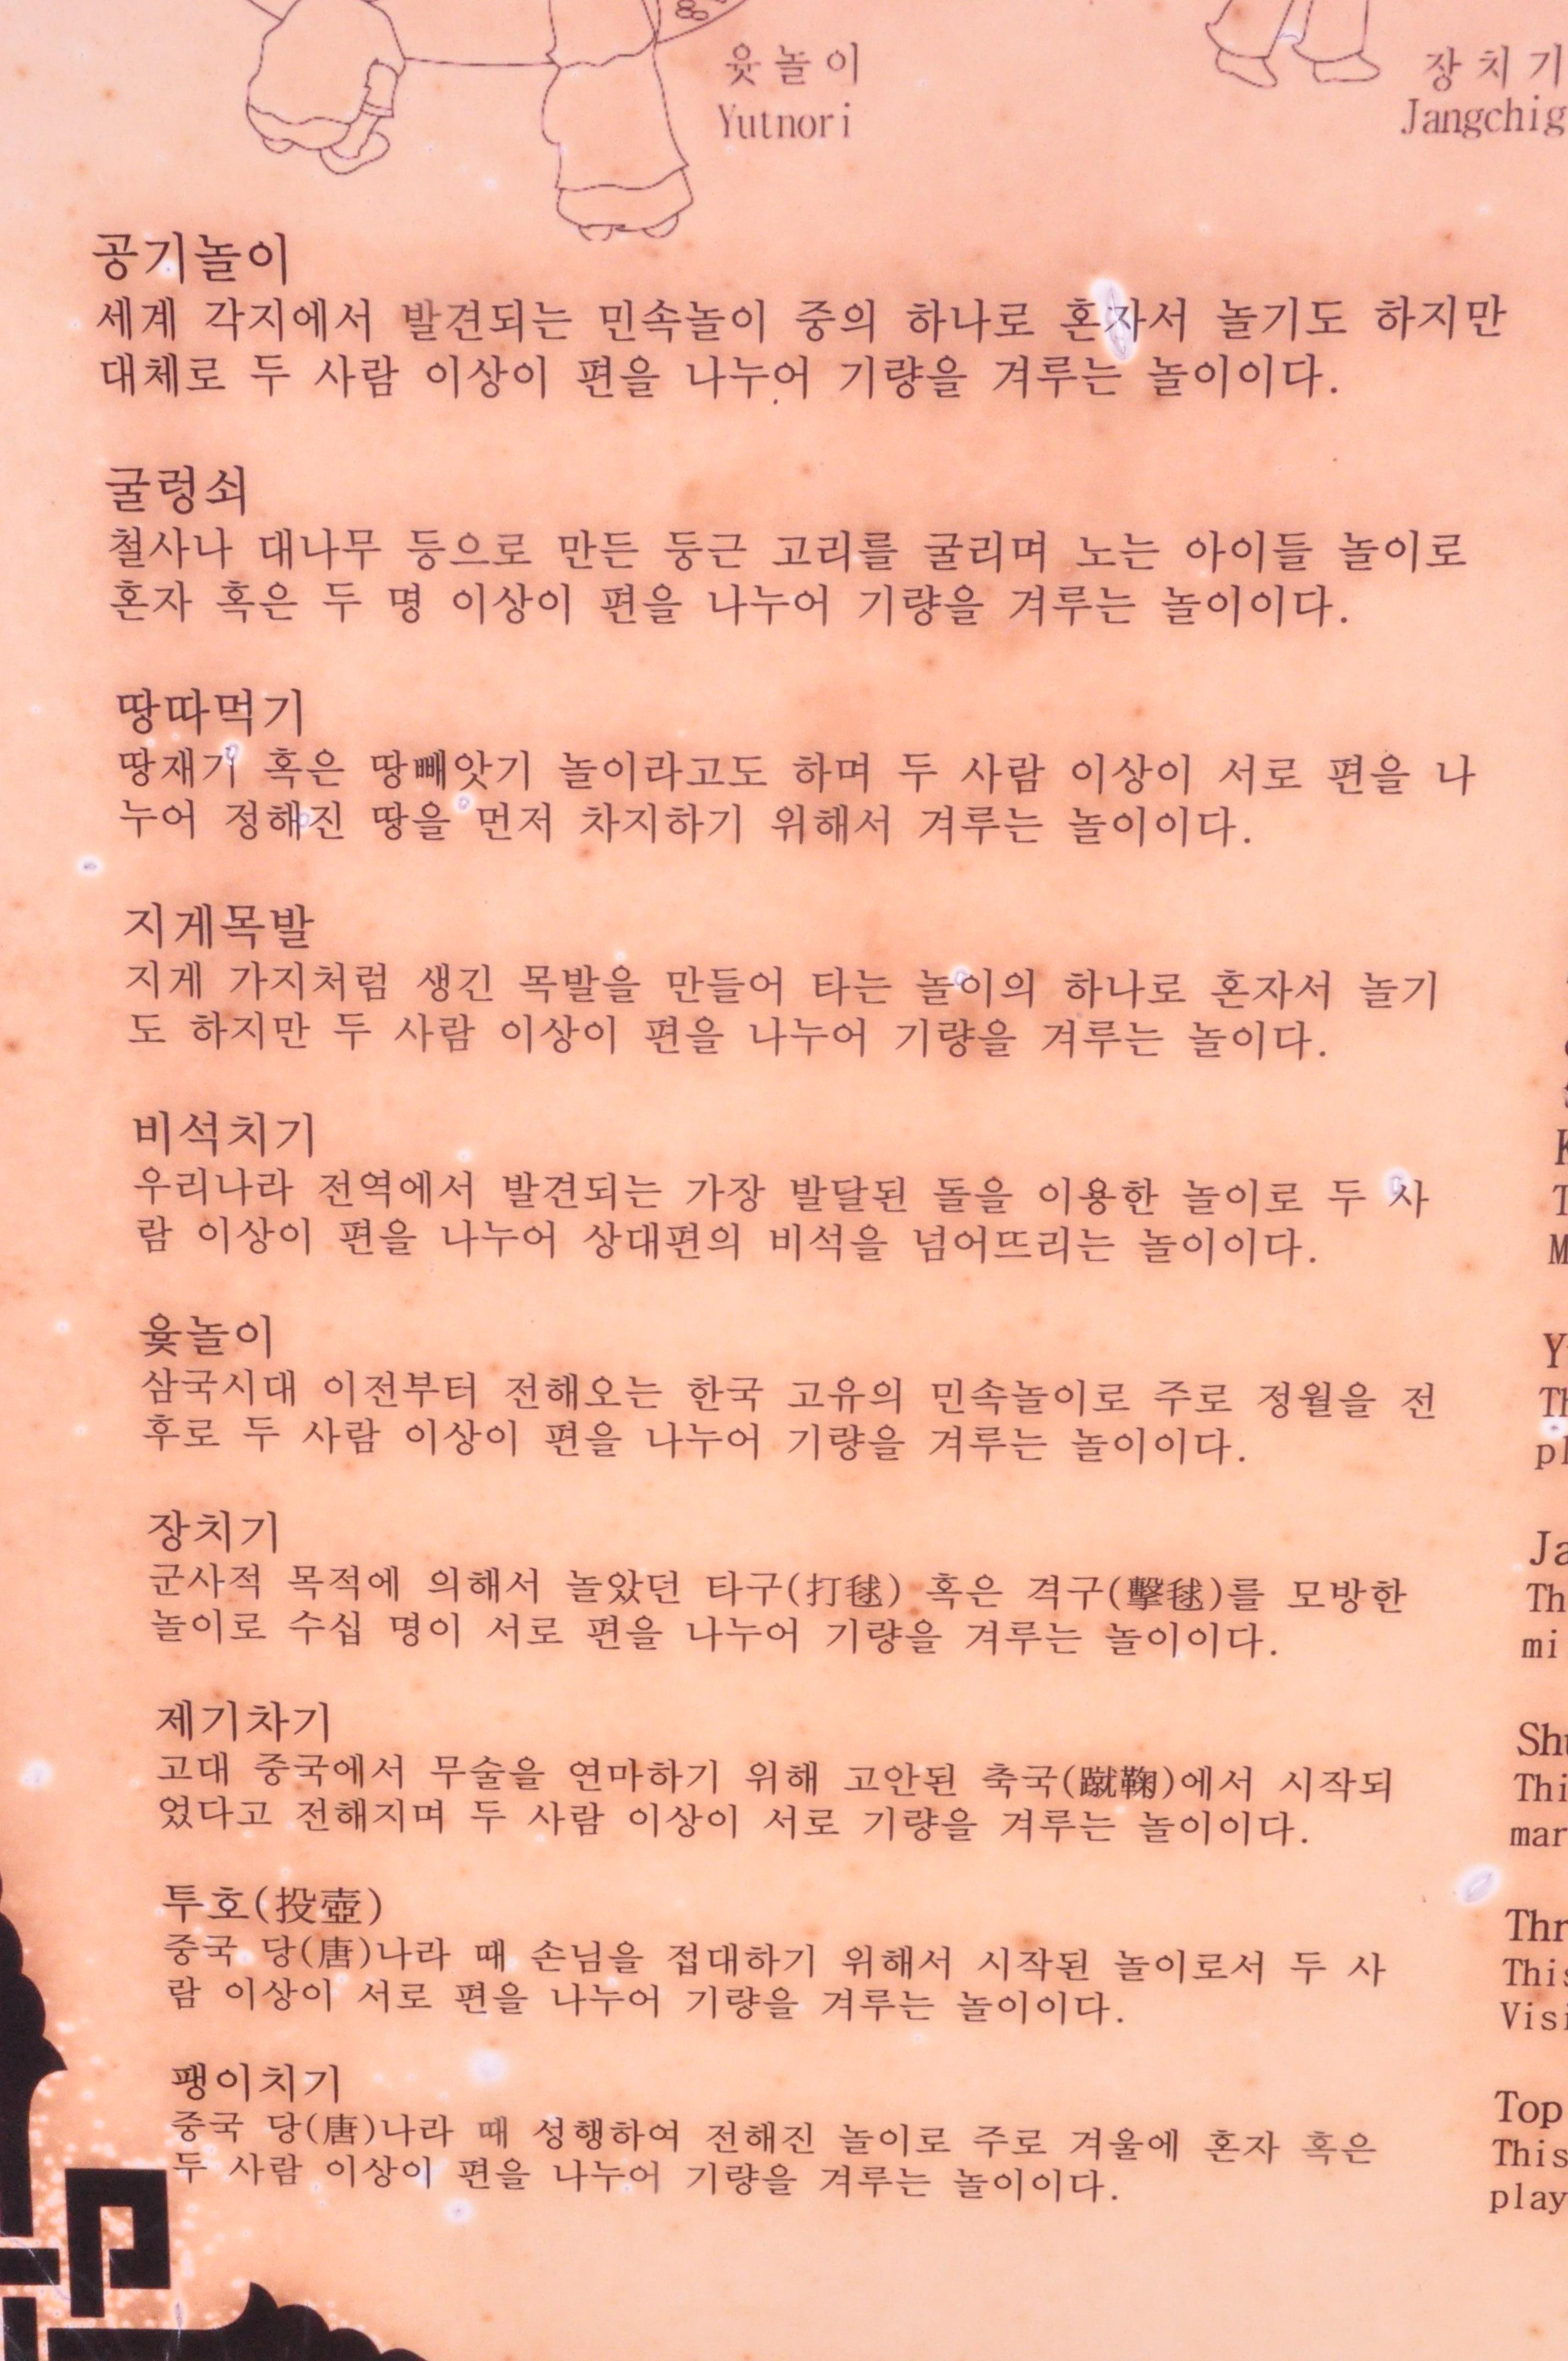 윷놀이
Yutnori
장치기
Jangchig
공기놀이
세계 각지에서 발견되는 민속놀이 중의 하나로 혼자서 놀기도 하지만
대체로 두 사람 이상이 편을 나누어 기량을 겨루는 놀이이다.
굴렁쇠
철사나 대나무 등으로 만든 둥근 고리를 굴리며 노는 아이들 놀이로
혼자 혹은 두 명 이상이 편을 나누어 기량을 겨루는 놀이이다.
땅따먹기
땅재기 혹은 땅빼앗기 놀이라고도 하며 두 사람 이상이 서로 편을 나
누어 정해진 땅을 먼저 차지하기 위해서 겨루는 놀이이다.
지게목발
지게 가지처럼 생긴 목발을 만들어 타는 놀이의 하나로 혼자서 놀기
도 하지만 두 사람 이상이 편을 나누어 기량을 겨루는 놀이다.
비석치기
우리나라 전역에서 발견되는 가장 발달된 돌을 이용한 놀이로 두 사
람 이상이 편을 나누어 상대편의 비석을 넘어뜨리는 놀이이다.
윷놀이
삼국시대 이전부터 전해오는 한국 고유의 민속놀이로 주로 정월을 전
후로 두 사람 이상이 편을 나누어 기량을 겨루는 놀이이다.
장치기
군사적 목적에 의해서 놀았던 타구(打毬) 혹은 격구(擊毬)를 모방한
놀이로 수십 명이 서로 편을 나누어 기량을 겨루는 놀이이다.
제기차기
고대 중국에서 무술을 연마하기 위해 고안된 축국(蹴鞠)에서 시작되
었다고 전해지며 두 사람 이상이 서로 기량을 겨루는 놀이이다.
투호(投壺)
중국 당(唐)나라 때 손님을 접대하기 위해서 시작된 놀이로서 두 사
람 이상이 서로 편을 나누어 기량을 겨루는 놀이이다.
팽이치기
중국 당(唐)나라 때 성행하여 전해진 놀이로 주로 겨울에 혼자 혹은
두 사람 이상이 편을 나누어 기량을 겨루는 놀이이다.
K
T
M
Y
Th
pl
Ja
Th
mi
Shu
Thi
mar
Thr
This
Visi
Top
This
play